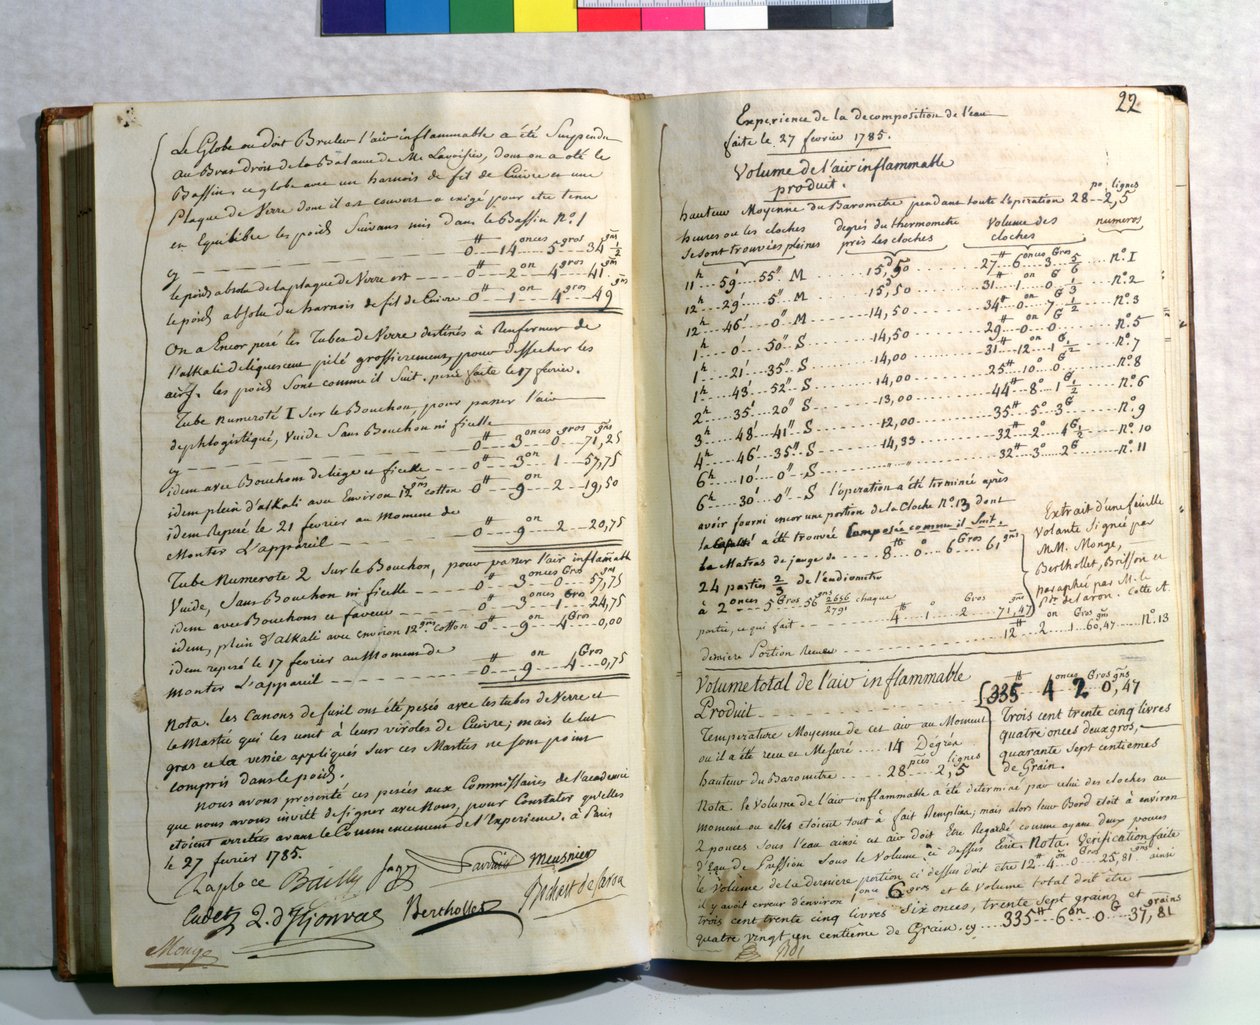 Le Globe ou doit Bruler l'air inflammable a été Suspendu
au Bras droit de la Balance de Mr Lavoisier, dont on a oté le
Bassin, ce globe avec un harnois de fil de Cuivre et une
Plaque de Verre dont il est couvert a exigé pour etre tenu
en Equilibre les poids Suivans mis dans le Bassin N.o 1
cy 0# 14 onces 5 gros 34 1/2 gns
le poids absolu de la plaque de Verre est 0# 2 on 4 gros 41 gns
le poids absolu du harnois de fil de Cuivre 0# 1 on 4 gros 49 gns
On a Encor pesé les Tubes de Verre destinés à Renfermer de
l'alkali deliquescent pilé grossierement, pour dessecher les
airs. les poids Sont comme il Suit. pesée faite le 17 fevrier.
Tube numeroté I Sur le Bouchon, pour passer l'air
dephlogistiqué, Vuide Sans Bouchon ni ficelle
cy 0# 3 onces 0 gros 71,25 gns
idem avec Bouchons de liege et ficelle 0# 3 on 1 57,75
idem plein d'alkali avec Environ 12 gns cotton 0# 9 on 2 19,50
idem Repesé le 21 fevrier au Moment de
Monter L'appareil 0# 9 on 2 20,75
Tube Numeroté 2 Sur le Bouchon, pour passer l'air inflammable
Vuide, Sans Bouchon ni ficelle 0# 3 onces 0 Gros 57,75 gns
idem avec Bouchons et 0# 3 on 1 Gro 24,75
idem, plein d'alkali avec environ 12 gns cotton 0# 9 on 4 Gros 0,00
idem repesé le 17 fevrier au Moment de
Monter L'appareil 0# 9 on 4 Gros 0,75
Nota. les Canons de fusil ont été pesés avec les tubes de Verre et
le Mastic qui les unit à leurs viroles de Cuivre; mais le lut
gras et la vessie appliqués Sur ces Mastics ne sont point
compris dans le poids.
Nous avons presenté ces pesées aux Commissaires de l'academie
que nous avons invité de signer avec Nous, pour Constater qu'elles
etoient arretées avant le Commencement de l'Experience. à Paris
le 27 fevrier 1785.
Laplace Bailly Sage Lavoisier Meusnier
Cadet Berthollet Bochart de Saron
Monge
22
Experience de la decomposition de l'eau
faite le 27 fevrier 1785.
Volume de l'air inflammable
produit.
hauteur Moyenne du Barometre pendant toute l'operation 28 po 2,5 lignes
heures ou les cloches degrés du thermometre Volume des numeros
Se sont trouvées pleines près Les cloches cloches
11h 59' 55" M 15d,50 27# 6 onces 3 Gros 5/6 n.o 1
12h 29' 5" M 15d,50 31# 1 on 0 G 6 n.o 2
12h 46' 0" M 14,50 34# 0 on 7 G 1/2 n.o 3
1h 0' 50" S 14,50 29# 0 0 n.o 5
1h 21' 35" S 14,00 31# 12 on 1 G 1/2 n.o 7
1h 43' 52" S 14,00 25# 10 on 0 G n.o 8
2h 35' 20" S 13,00 44# 8 o 1 G 1/2 n.o 6
3h 48' 41" S 12,00 35# 5 o 3 G n.o 9
4h 46' 35" S 14,33 32# 2 o 4 G 1/2 n.o 10
6h 10' 0" S " " 32# 3 o 2 G n.o 11
6h 30' 0" S l'operation a été terminée après
avoir fourni encor une portion de la Cloche N.o 13 dont
la a été trouvée Composée comme il Suit.
Le Matras de jauge de 8# 0 on 6 Gros 61 gns
24 parties 2/3 de l'eudiometre
à 2 onces 5 Gros 56 gns 2656/2791 chaque
partie, ce qui fait 4# 1 o 2 Gros 71,47 gns
derniere Portion 12# 2 on 1 Gros 60,47 gns N.o 13
Extrait d'une feuille
Volante Signée par
MM. Monge,
Berthollet, Brisson et
paraphée par M. le
Pt. de Saron. Cotte A.
Volume total de l'air inflammable
Produit 335# 4 onces 2 Gros 0,47 gns
Trois cent trente cinq livres
quatre onces deux gros,
quarante Sept centiemes
de Grain.
Temperature Moyenne de cet air au Moment
ou il a été recu et Mesuré 14 Degrés
hauteur du Barometre 28 pces 2,5 lignes
Nota. le Volume de l'air inflammable a été determiné par celui des cloches au
moment ou elles etoient tout a fait Remplies; mais alors leur Bord etoit à environ
2 pouces Sous l'eau ainsi cet air doit Etre Regardé comme ayant deux pouces
d'Eau de Pression Sous le Volume ci dessus Ecrit. Nota. Verification faite
le Volume de la derniere portion ci dessus doit etre 12# 4 on 0 Gros 25,81 gns ainsi
il y avoit erreur d'environ 6 gros et le Volume total doit être
trois cent trente cinq livres Six onces, trente Sept grains et
quatre vingt un centieme de Grain. cy 335# 6 on 0 Gros 37,81 grains